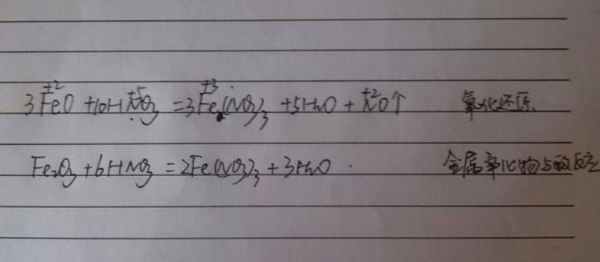 3FeO + 10HNO₃ = 3Fe(NO₃)₃ + 5H₂O + NO↑ 氧化还原
+2 +5 +3 +2
Fe₂O₃ + 6HNO₃ = 2Fe(NO₃)₃ + 3H₂O. 金属氧化物与酸反应